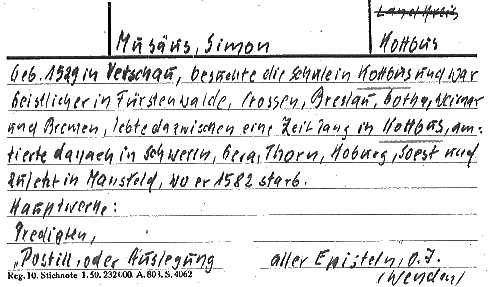 Landkreis
Musäus, Simon Kottbus
Geb. 1529 in Vetschau, besuchte die Schule in Kottbus und war
Geistlicher in Fürstenwalde, Crossen, Breslau, Gotha, Weimar
und Bremen, lebte dazwischen eine Zeit lang in Kottbus, am-
tierte danach in Schwerin, Gera, Thorn, Koburg, Soest und
zuletzt in Mansfeld, wo er 1582 starb.
Hauptwerke:
Predigten,
"Postill, oder Auslegung aller Episteln, O. J.
(Wenden)
Reg. 10. Stichnote 1. 50. 232000. A. 803. S. 4062